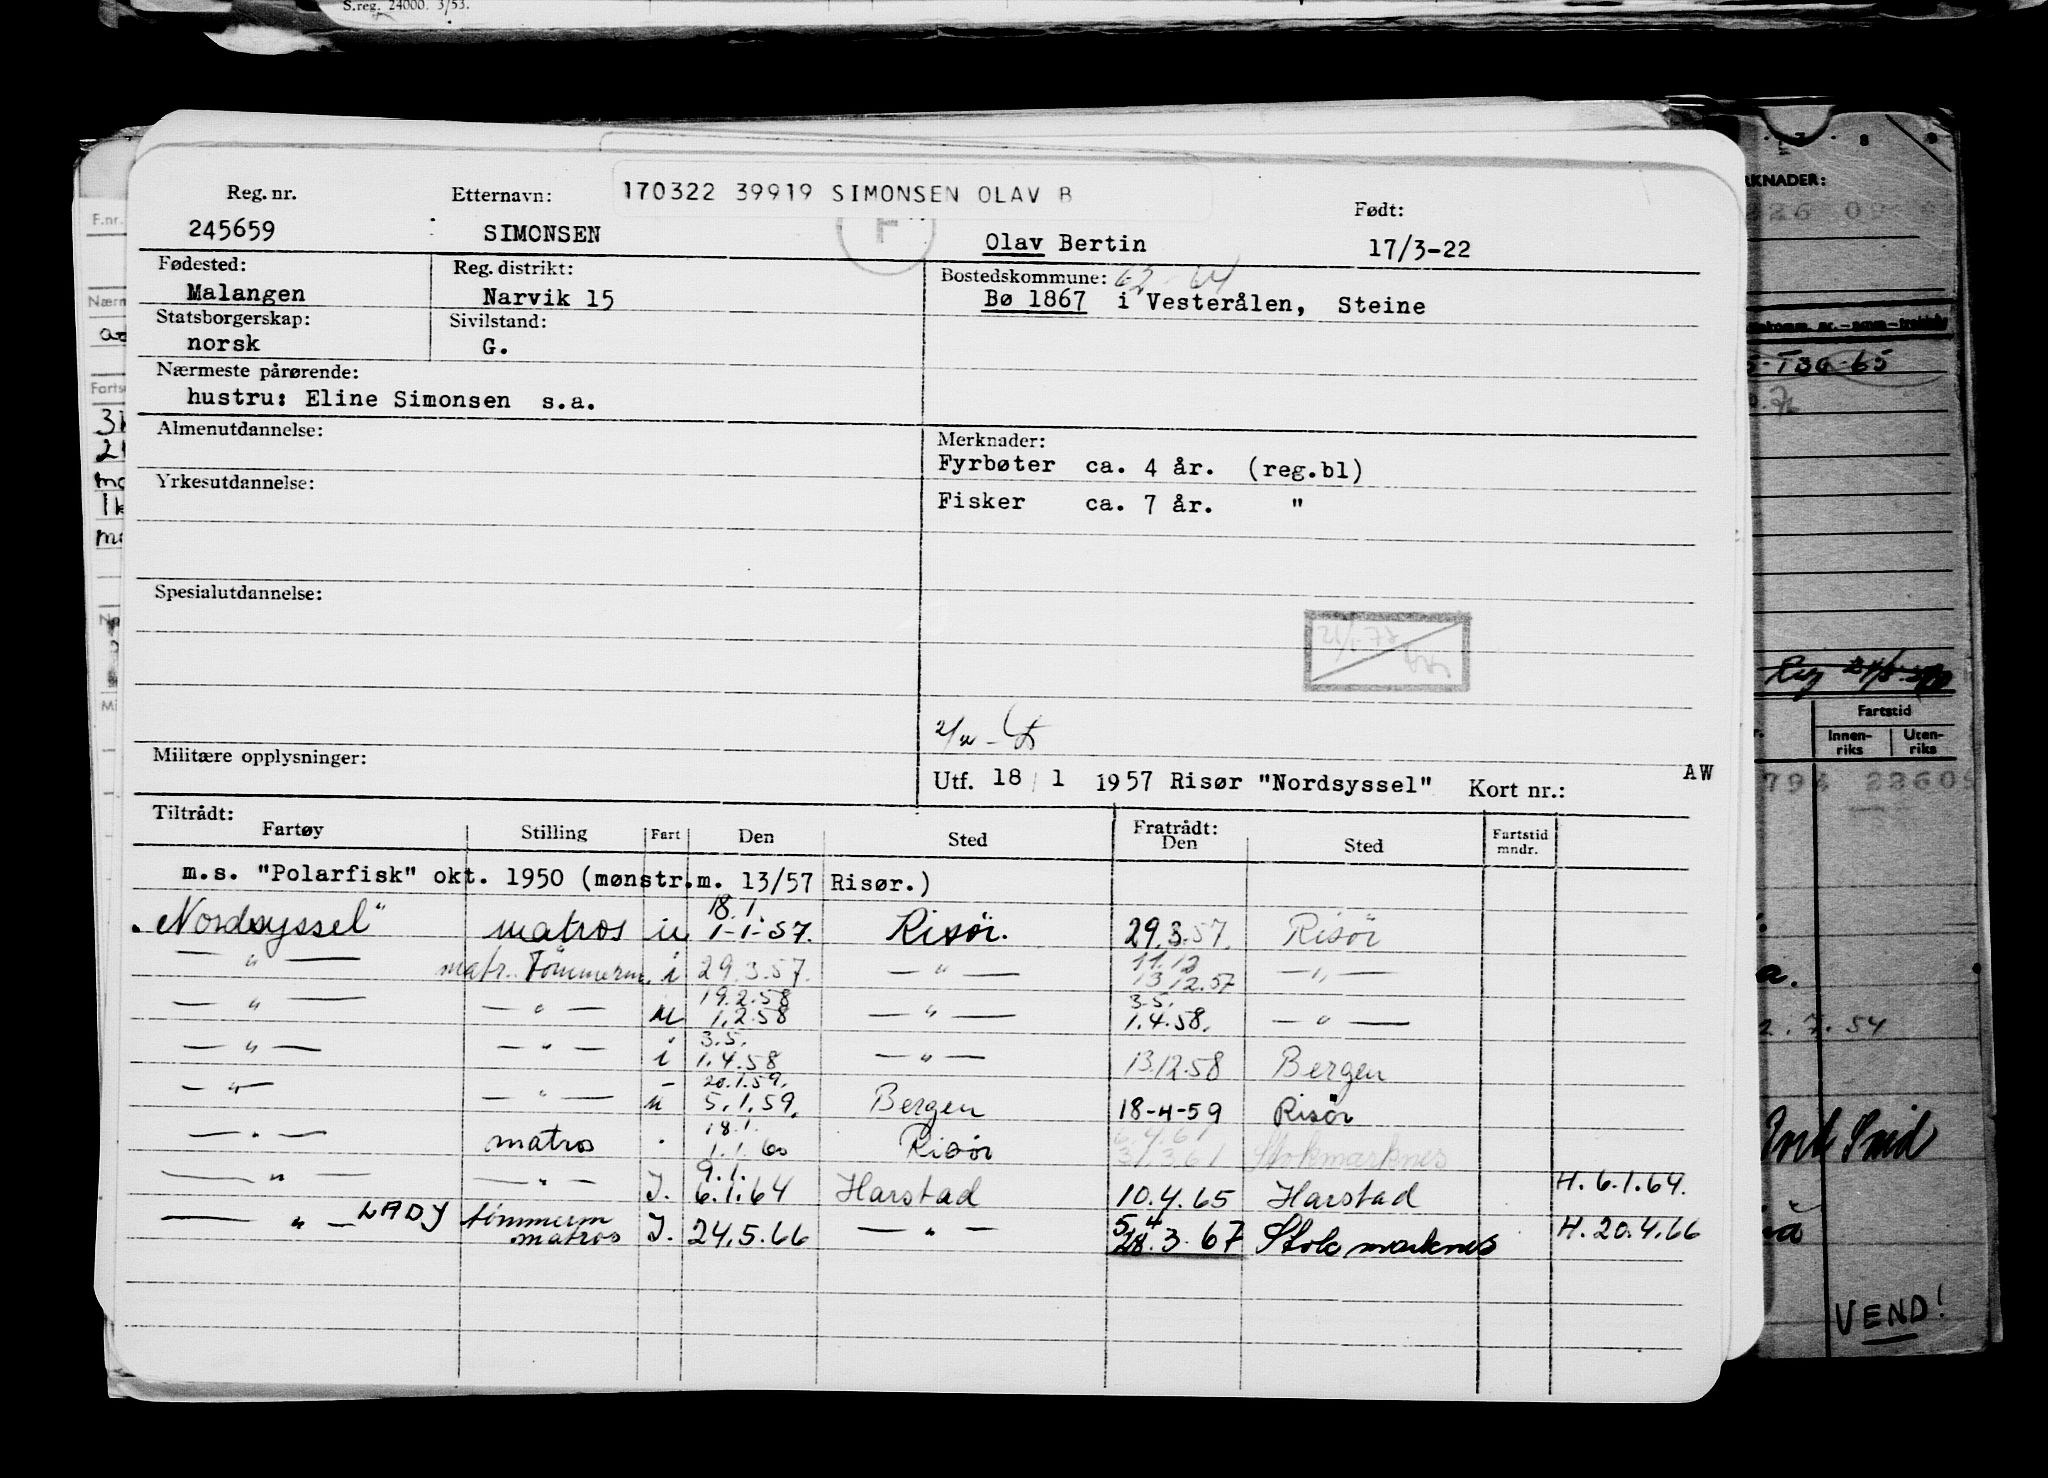 S.reg. 24000. 3/53.
170322 39919 SIMONSEN OLAV B
Reg. nr. Etternavn: Født:
245659 SIMONSEN Olav Bertin 17/3-22
F
Fødested: Reg. distrikt: Bostedskommune: 62-64
Malangen Narvik 15 Bø 1867 i Vesterålen, Steine
Statsborgerskap: Sivilstand:
norsk G.
Nærmeste pårørende:
hustru: Eline Simonsen s.a.
Almenutdannelse: Merknader:
Fyrbøter ca. 4 år. (reg.bl)
Yrkesutdannelse:
Fisker ca. 7 år. "
Spesialutdannelse:
Militære opplysninger:
Utf. 18/1 1957 Risør "Nordsyssel" Kort nr.: AW
Tiltrådt: Fratrådt:
Fartøy Stilling Fart Den Sted Den Sted Fartstid mndr.
m.s. "Polarfisk" okt. 1950 (mønstr.m. 13/57 Risør.)
18.1.
"Nordsyssel" matros u 1-1-57. Risör. 29.3.57. Risör
11.12
— " — matr. Tömmerm. i 29.3.57. — " — 13.12.57 — " —
19.2.58 3.5.
— " — — " — u 1.2.58 — " — 1.4.58. — " —
3.5.
— " — — " — i 1.4.58 — " — 13.12.58 Bergen
20.1.59.
— " — — " — u 5.1.59. Bergen 18-4-59 Risör
18.1. 6.4.61
— " — matros . 1.1.60 Risör 31.3.61 Stokmarknes
9.1.
— " — — " — I. 6.1.64 Harstad 10.4.65 Harstad H. 6.1.64.
— " — LADY tömmerm 5/4
matros I. 24.5.66 — " — 28.3.67 Stokmarknes H. 20.4.66
F.nr.
Nærm
Fartsm
RKNADER:
5-T36-65
Reg
Fartstid
Innen-riks Uten-riks
2.7.54
VEND!